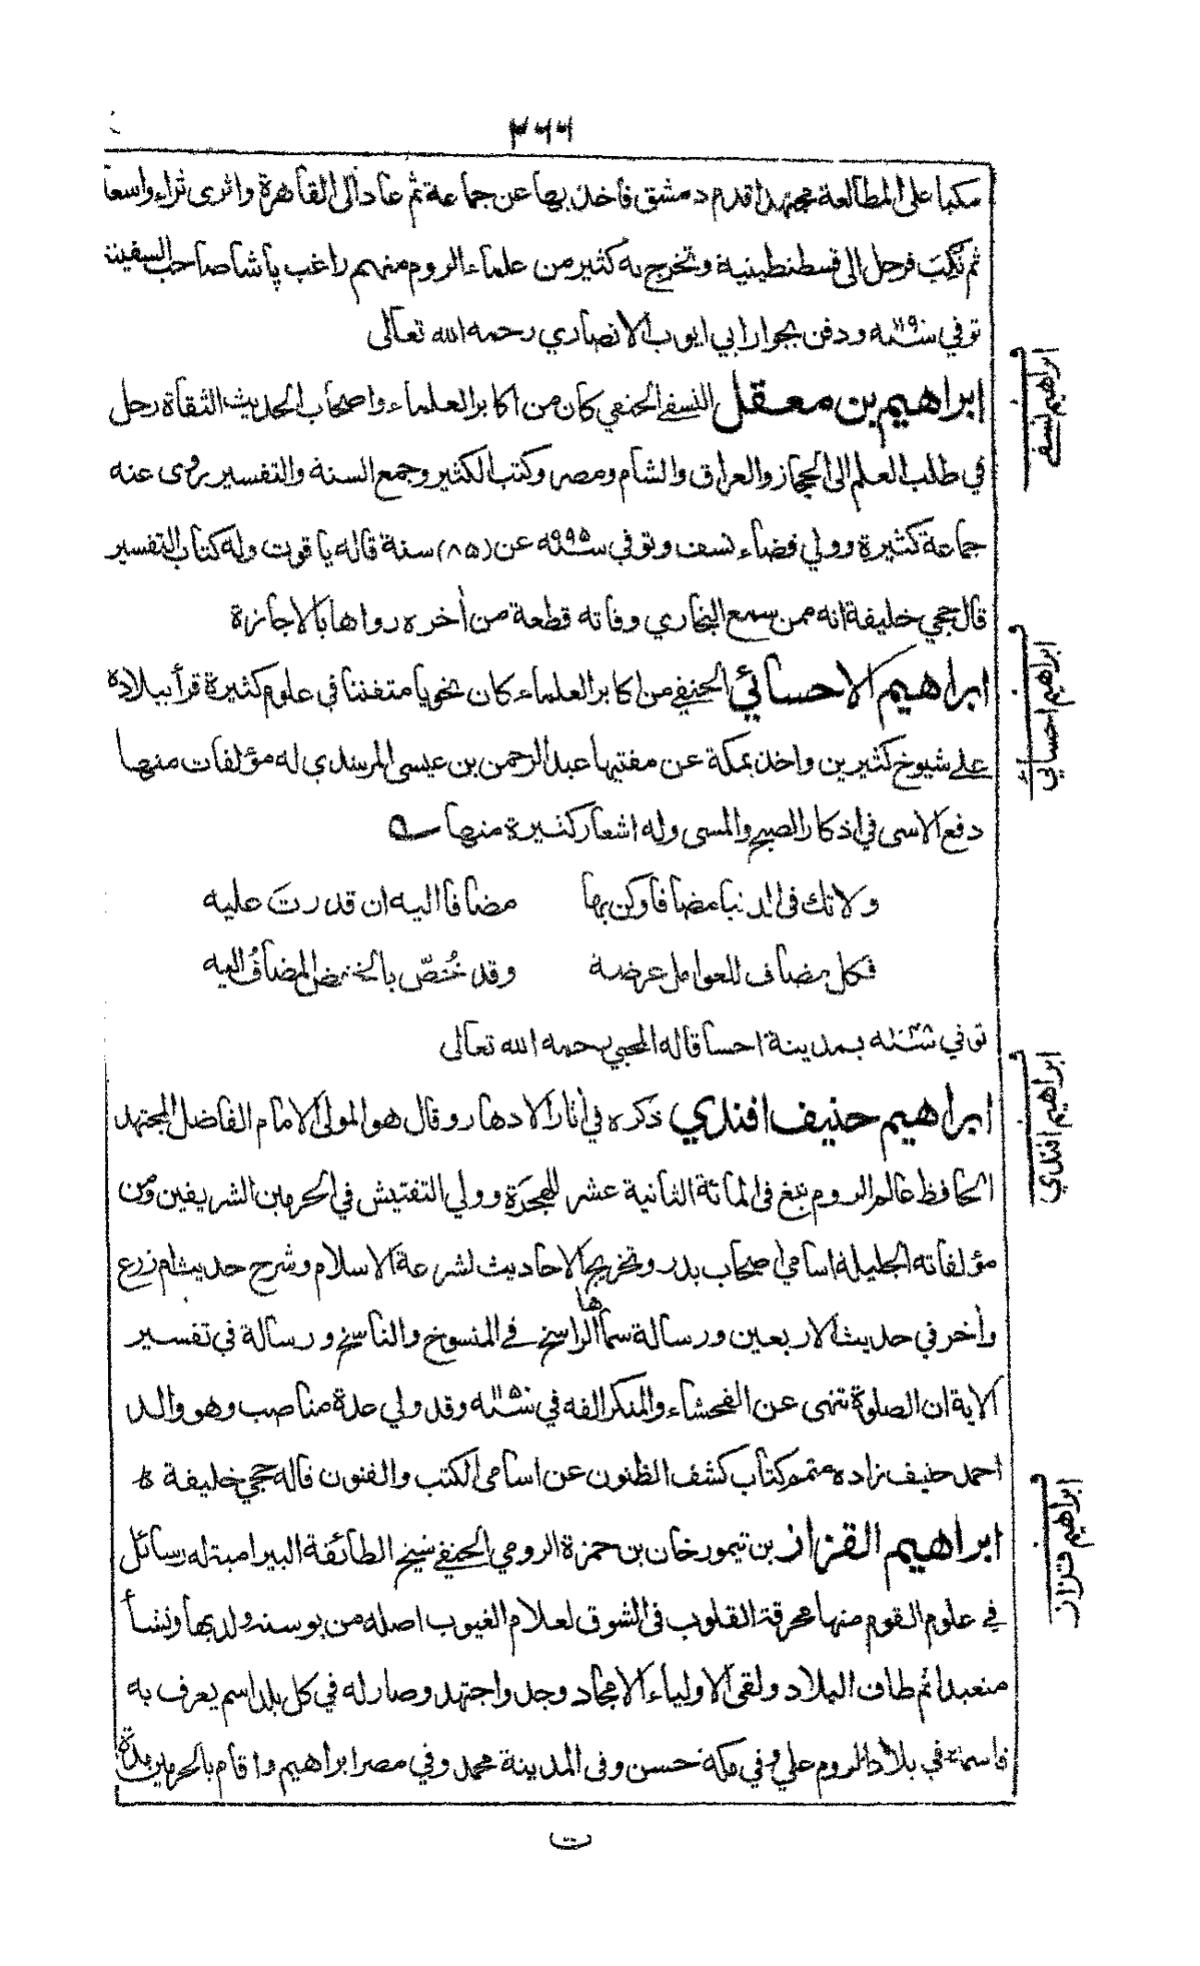 ٣٦٦
مكبا على المطالعة مجتهدا قدم دمشق فأخذ بها عن جماعة ثم عاد الى القاهرة واثرى ثراء واسعا
ثم نُكِبَ فرحل الى قسطنطينية وتخرج به كثير من علماء الروم منهم راغب پاشا صاحب السفينة
توفي سنة ١١٩٠ ودفن بجوار ابي ايوب الانصاري رحمه الله تعالى
ابراهيم نسفي
ابراهيم بن معقل النسفي الحنفي كان من اكابر العلماء واصحاب الحديث الثقاة رحل
في طلب العلم الى الحجاز والعراق والشام ومصر وكتب الكثير وجمع السنة والتفسير روى عنه
جماعة كثيرة وولي قضاء نسف وتوفي سنة عن (٨٥) سنة قاله ياقوت وله كتاب التفسير
قال حجي خليفة انه ممن سمع البخاري وفاته قطعة من أخره رواها بالاجازة
ابراهيم احسائي
ابراهيم الاحسائي الحنفي من اكابر العلماء كان نحويا متفننا في علوم كثيرة قرأ ببلاده
على شيوخ كثيرين واخذ بمكة عن مفتيها عبد الرحمن بن عيسى المرشدي له مؤلفات منها
دفع الاسى في اذكار الصبح والمسى وله اشعار كثيرة منها
ولا تك في الدنيا مضافا وكن بها مضافا اليه ان قدرتَ عليه
فكل مضاف للعوامل عرضة وقد خُصّ بالخفض المضافُ اليه
توفي سنة بمدينة احسا قاله المحبي رحمه الله تعالى
ابراهيم افندي
ابراهيم حنيف افندي ذكره في أثار الادهار وقال هو المولى الامام الفاضل المجتهد
الحافظ عالم الروم نبغ في المائة الثانية عشر للهجرة وولي التفتيش في الحرمين الشريفين ومن
مؤلفاته الجليلة اسامي اصحاب بدر وتخريج الاحاديث لشرعة الاسلام وشرح حديث ام زرع
وأخر في حديث الاربعين ورسالة سماها الراسخ في المنسوخ والناسخ ورسالة في تفسير
الاية ان الصلوة تنهى عن الفحشاء والمنكر الفه في سنة وقد ولي عدة مناصب وهو والد
احمد حنيف زاده متمم كتاب كشف الظنون عن اسامي الكتب والفنون قاله حجي خليفة ه
ابراهيم قزاز
ابراهيم القزاز بن تيمور خان بن حمزة الرومي الحنفي شيخ الطائفة البيرامية له رسائل
في علوم القوم منها محرقة القلوب في الشوق لعلام الغيوب اصله من بوسنه ولد بها ونشأ
متعبدا ثم طاف البلاد ولقي الاولياء الامجاد وجد واجتهد وصار له في كل بلد اسم يعرف به
فاسمه في بلاد الروم علي وفي مكة حسن وفي المدينة محمد وفي مصر ابراهيم واقام بالحرمين مدة
ت